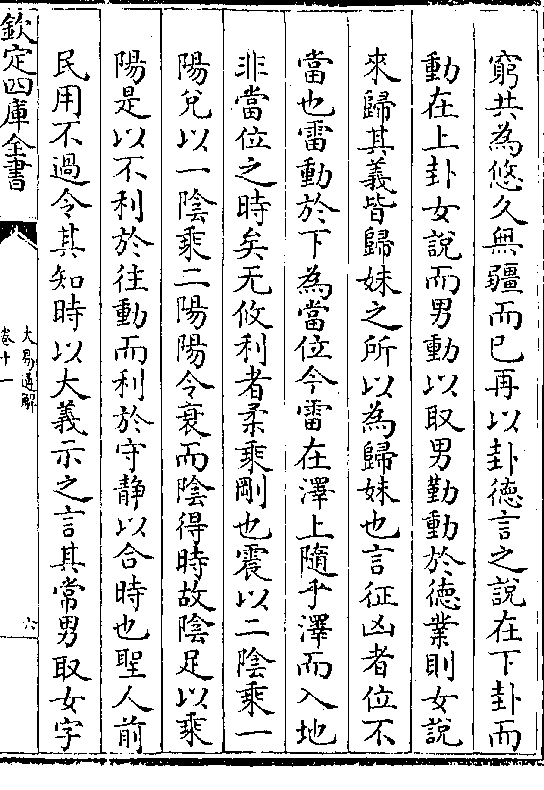 窮共為悠久無疆而已再以卦徳言之說在下卦而
動在上卦女說而男動以取男勤動於徳業則女說
來歸其義皆歸妹之所以為歸妹也言征凶者位不
當也雷動於下為當位今雷在澤上隨乎澤而入地
非當位之時矣无攸利者柔乘剛也震以二陰乘一
陽兌以一陰乘二陽陽令衰而陰得時故陰足以乘
陽是以不利於往動而利於守静以合時也聖人前
民用不過令其知時以大義示之言其常男取女字
欽定四庫全書
大易通解
卷十一
六